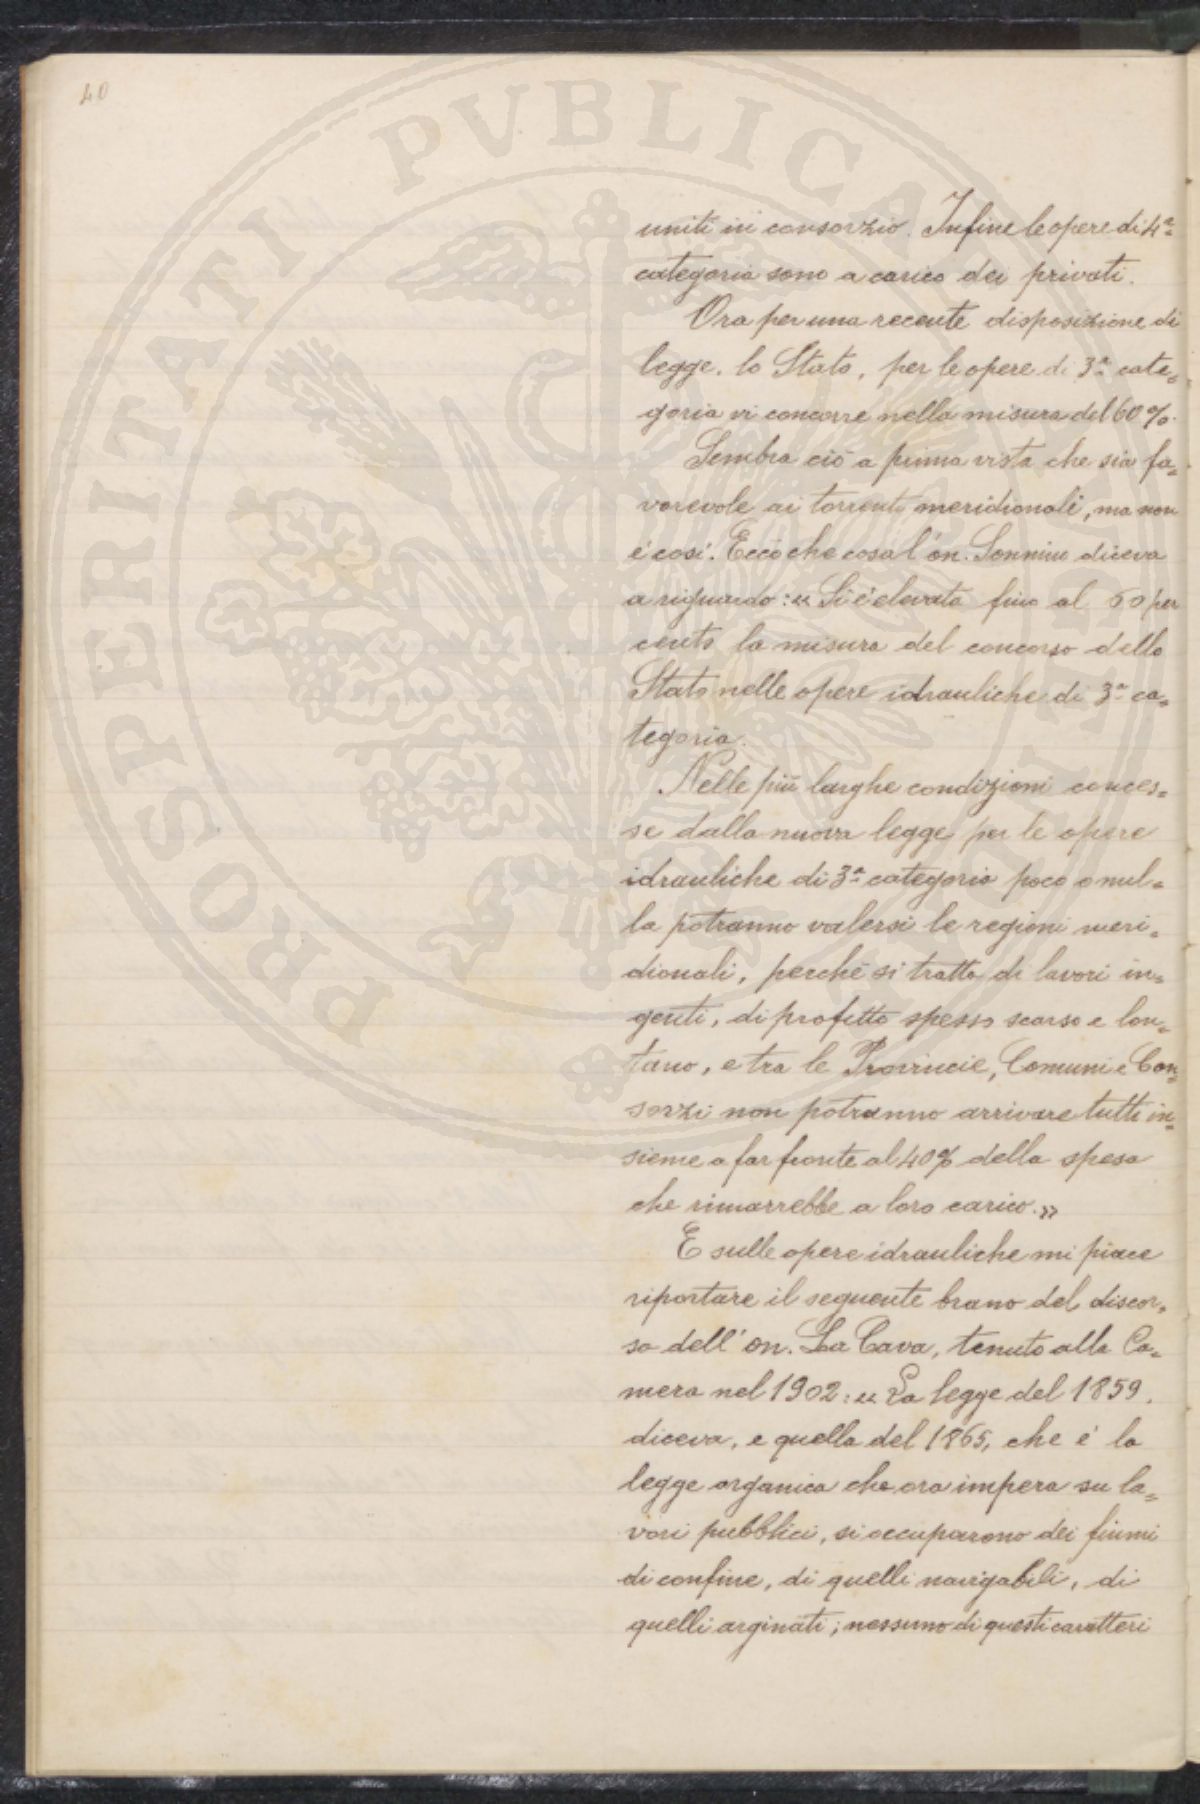 40
PROSPERITATI PVBLICAE
uniti in consorzio. Infine le opere di 4ª
categoria sono a carico dei privati.
Ora per una recente disposizione di
legge, lo Stato, per le opere di 3ª cate=
goria vi concorre nella misura del 60%.
Sembra ciò a prima vista che sia fa=
vorevole ai torrenti meridionali, ma non
é cosi'. Ecco che cosa l'on. Sonnino diceva
a riguardo: « Si é elevata fino al 60 per
cento la misura del concorso dello
Stato nelle opere idrauliche di 3ª ca=
tegoria.
Nelle più larghe condizioni conces=
se dalla nuova legge per le opere
idrauliche di 3ª categoria poco o nul=
la potranno valersi le regioni meri=
dionali, perché si tratta di lavori in=
genti, di profitto spesso scarso e lon=
tano, e tra le Provincie, Comuni e Con=
sorzi non potranno arrivare tutti in=
sieme a far fronte al 40% della spesa
che rimarrebbe a loro carico.»
E sulle opere idrauliche mi piace
riportare il seguente brano del discor=
so dell'on. La Cava, tenuto alla Ca=
mera nel 1902: « La legge del 1859,
diceva, e quella del 1865, che é la
legge organica che ora impera su la=
vori pubblici, si occuparono dei fiumi
di confine, di quelli navigabili, di
quelli arginati; nessuno di questi caratteri